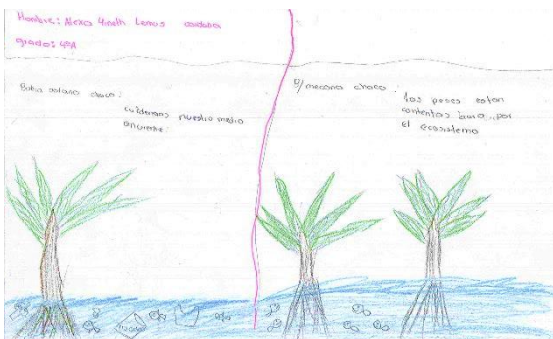 Nombre: Alexa Yineth Lemus
grado: 4ºA
Bahia solano choco:
cuidemos nuestro medio
El mecana choco:
los peses estan
contentos
por
el ecosistema